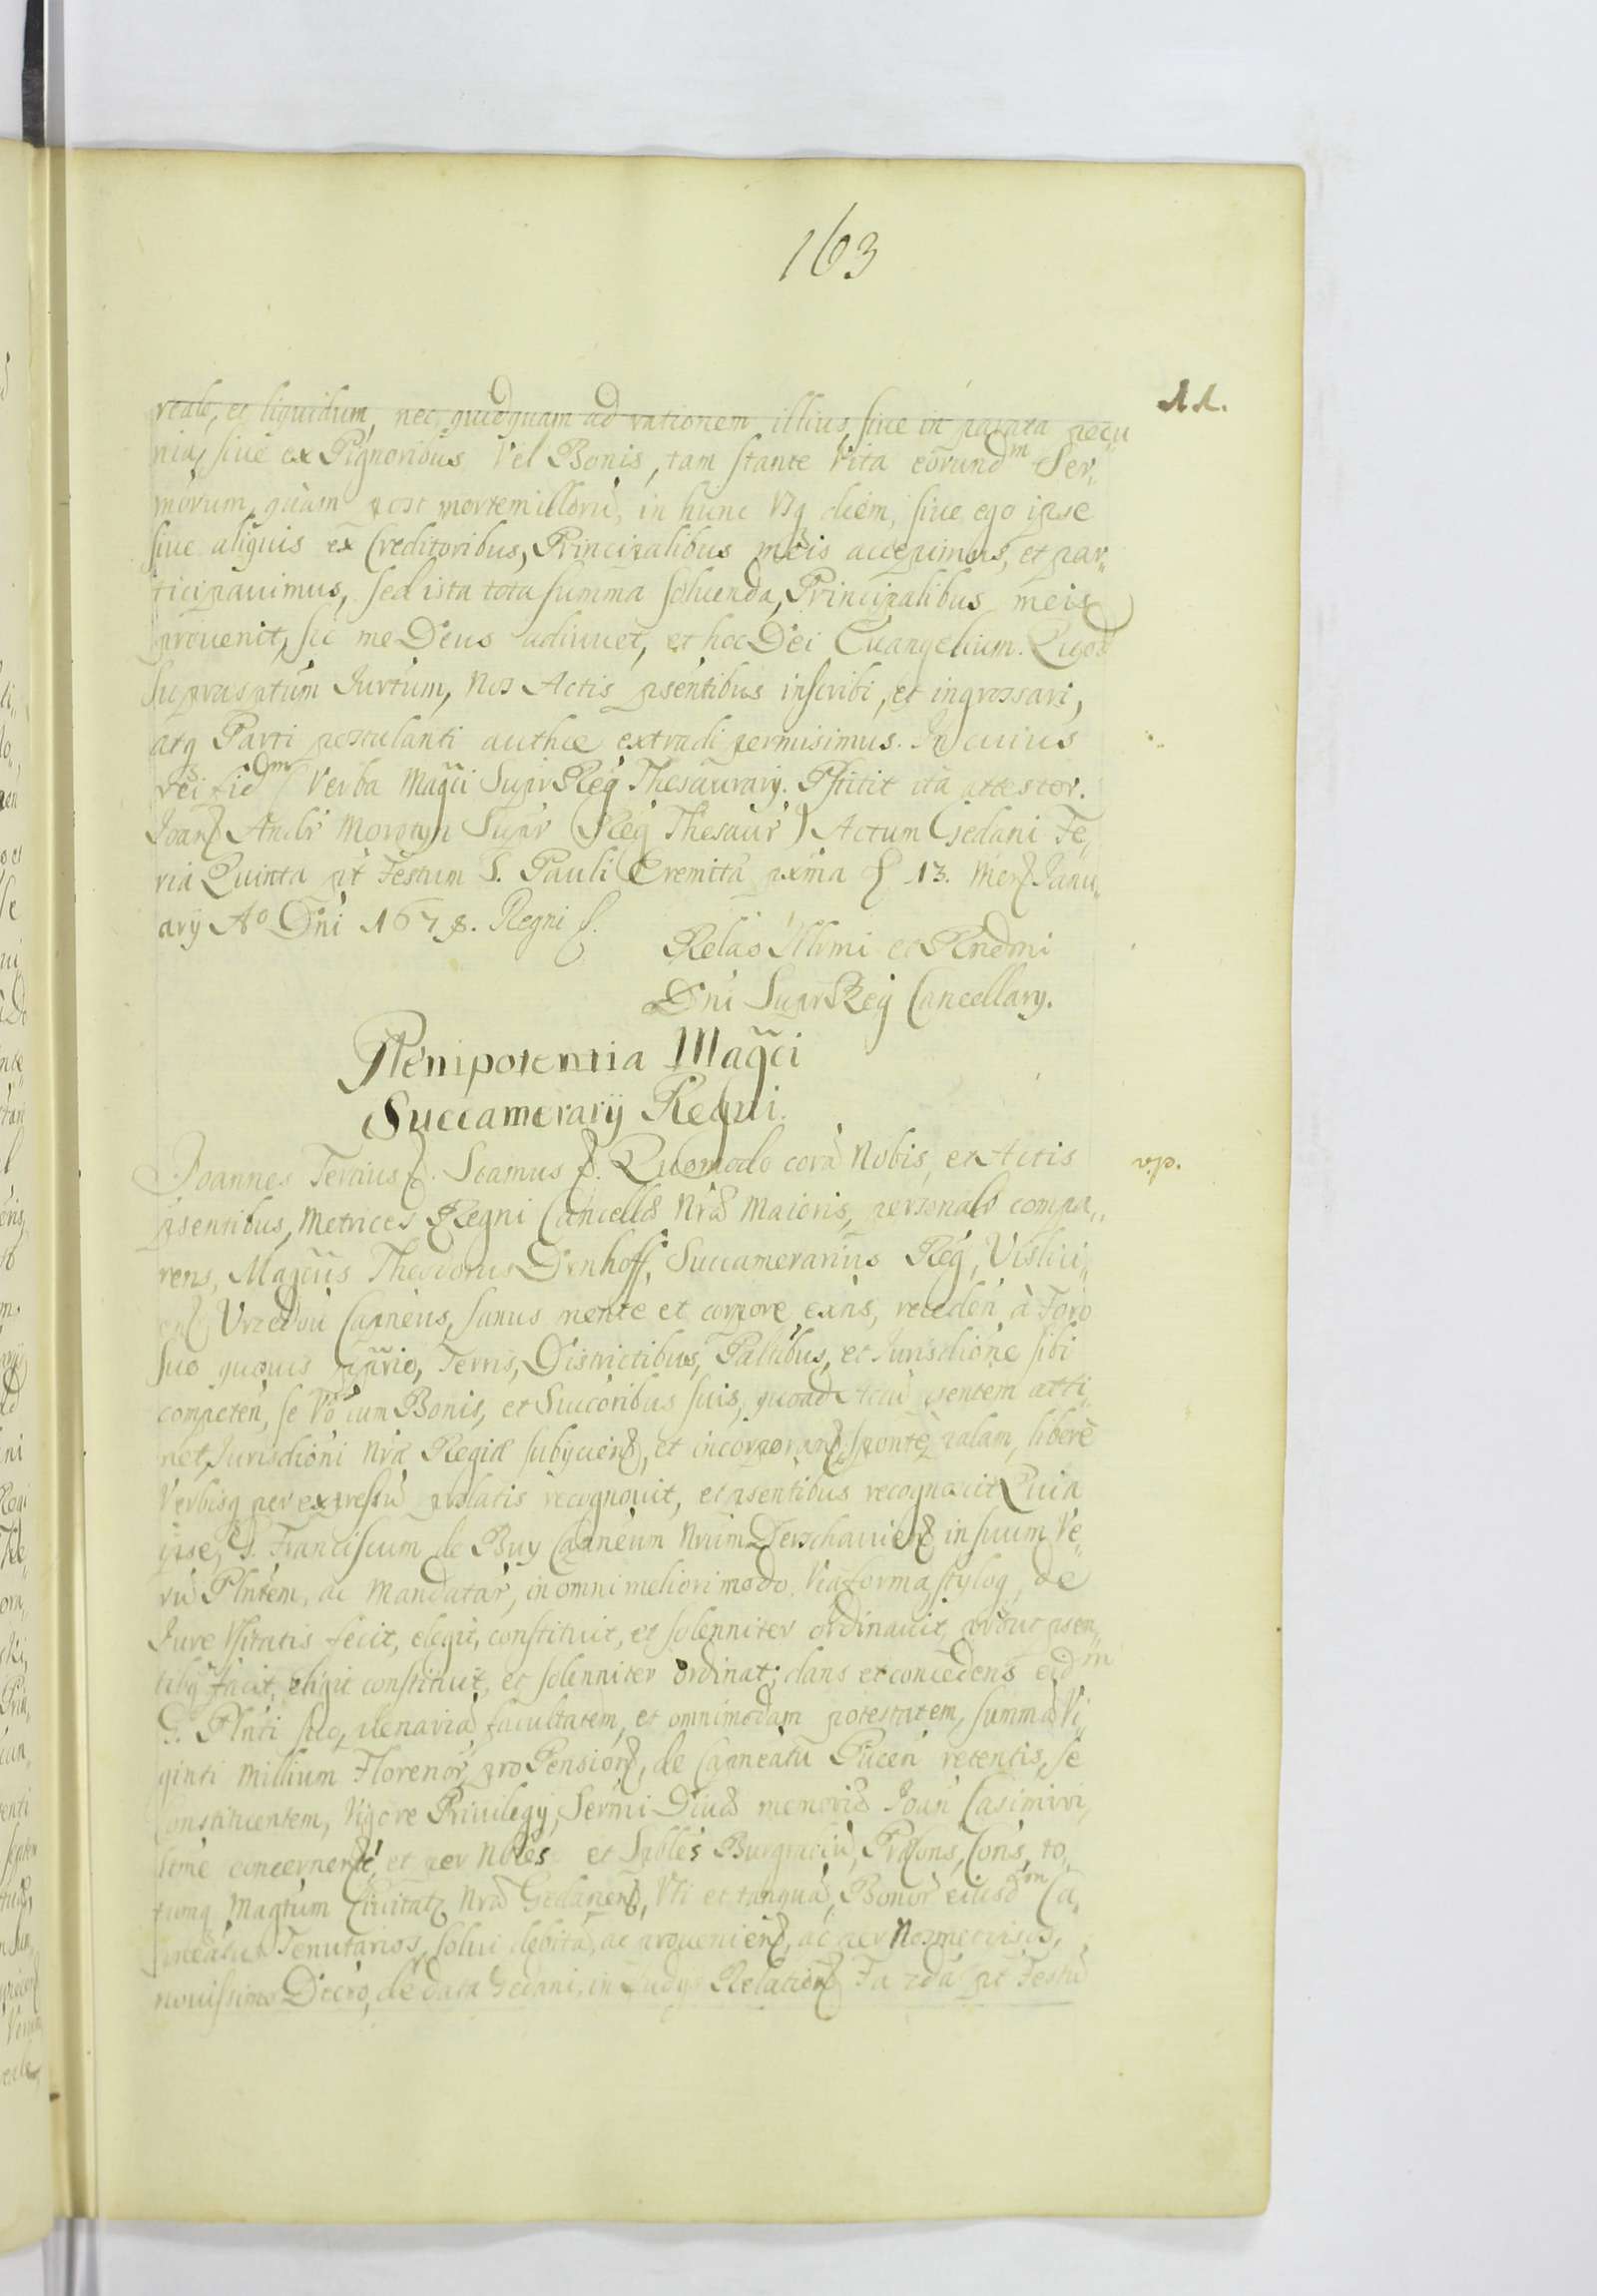 163
reale, et liquidum, nec quidquam ad rationem illius, siue in parata pecu„
nia, siue ex Pignoribus Vel Bonis, tam stante Vita eorundm Ser„
morum, quam post mortem illorũ, in hunc Vsq diem, siue ego ipse
siue aliquis ex Creditoribus, Principalibus meis accepimus, et par„
ticipauimus, sed ista tota summa soluenda, Principalibus meis
prouenit, sic me Deus adiuuet, et hoc Dei Euangelium. Quod
suprasptum Iurtum, Nos Actis psentibus inscribi, et ingrossari,
atq Parti postulanti authce extradi permisimus. In cuius
rei fidm Verba Magci Supr Reg Thesaurarij. Pstitit ita attestor.
Joan Andr Morstyn Supr Reg Thesaur) Actum Gedani Fe„
ria Quinta pt Festum S. Pauli Eremitta pxma 13. Men Janu„
arij Ao Dni 1678. Regni
Relao Illrmi et Rndmi
Dni Supr Reg Cancellarij.
Plenipotentia Magci
Succamerarij Regni.
Joannes Tertius. Scamus. Quomodo corã Nobis, et Actis
psentibus, Metrices Regni Cancellæ Nræ Maioris, personalr compa„
rens, Magcus Theodorus Denhoff, Succamerarius Reg, Vislici„
en Vrzedou Capneus, sanus mente et corpore exns, receden à Foro
suo quouis pprio, Terris, Districtibus, Paltibus, et Jurisdione sibi
competen, se Vo cum Bonis, et Succoribus suis, quoad Actũ psentem atti„
net, Jurisdioni Nræ Regiæ subijcien, et incorporan, sponte, palam, liberè
Verbisq per expressũ prolatis recognouit, et psentibus recognoscit Quia
ipse, G. Franciscum de Buy Capneum Nrum Derschauien in suum Ve„
rũ Plntem, ac Mandatar, in omni meliori modo, Via forma styloq, de
Jure Vsitatis fecit, elegit, constituit, et solenniter ordinauit, prout psen„
tibq facit, eligit constituit, et solenniter ordinat; dans et concedens eidm
G. Plnti suo, plenariã facultatem, et omnimodam potestatem, summã Vi„
ginti Millium Florenor, pro Pension, de Capneatu Pucen retentis, se
constituentem, Vigore Priuilegij, Sermi Diuæ memoriæ Joan Casimiri,
seme concernen, et per Nbles et Spbles Burgrabiũ, Prcons, Cons, to„
tumq Magtum Ciuitat Nræ Gedanen, Vti et tanquã, Bonor eiusdm Ca„
pneatus Tenutarios, solui debitã, ac prouenien, ac per
nouissimo Dcero, de data Gedani, in Relation Fa 2da pt Festũ